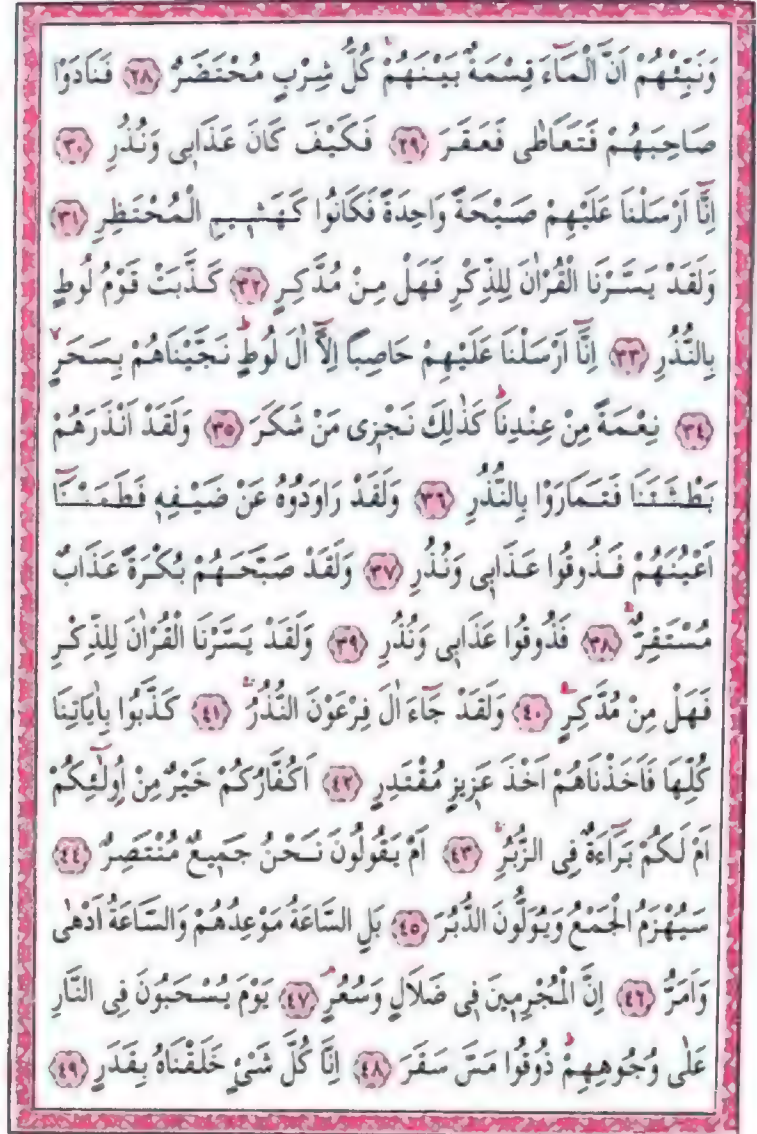 وَنَبِّئْهُمْ اَنَّ الْمَٓاءَ قِسْمَةٌ بَيْنَهُمْۚ كُلُّ شِرْبٍ مُحْتَضَرٌ ﴿٢٨﴾ فَنَادَوْا
صَاحِبَهُمْ فَتَعَاطٰى فَعَقَرَ ﴿٢٩﴾ فَكَيْفَ كَانَ عَذَابٖى وَنُذُرِ ﴿٣٠﴾
اِنَّٓا اَرْسَلْنَا عَلَيْهِمْ صَيْحَةً وَاحِدَةً فَكَانُوا كَهَشٖيمِ الْمُحْتَظِرِ ﴿٣١﴾
وَلَقَدْ يَسَّرْنَا الْقُرْاٰنَ لِلذِّكْرِ فَهَلْ مِنْ مُدَّكِرٍ ﴿٣٢﴾ كَذَّبَتْ قَوْمُ لُوطٍ
بِالنُّذُرِ ﴿٣٣﴾ اِنَّٓا اَرْسَلْنَا عَلَيْهِمْ حَاصِبًا اِلَّٓا اٰلَ لُوطٍۜ نَجَّيْنَاهُمْ بِسَحَرٍۙ
﴿٣٤﴾ نِعْمَةً مِنْ عِنْدِنَاۜ كَذٰلِكَ نَجْزٖى مَنْ شَكَرَ ﴿٣٥﴾ وَلَقَدْ اَنْذَرَهُمْ
بَطْشَتَنَا فَتَمَارَوْا بِالنُّذُرِ ﴿٣٦﴾ وَلَقَدْ رَاوَدُوهُ عَنْ ضَيْفِهٖ فَطَمَسْنَٓا
اَعْيُنَهُمْ فَذُوقُوا عَذَابٖى وَنُذُرِ ﴿٣٧﴾ وَلَقَدْ صَبَّحَهُمْ بُكْرَةً عَذَابٌ
مُسْتَقِرٌّۚ ﴿٣٨﴾ فَذُوقُوا عَذَابٖى وَنُذُرِ ﴿٣٩﴾ وَلَقَدْ يَسَّرْنَا الْقُرْاٰنَ لِلذِّكْرِ
فَهَلْ مِنْ مُدَّكِرٍۜ ﴿٤٠﴾ وَلَقَدْ جَٓاءَ اٰلَ فِرْعَوْنَ النُّذُرُۚ ﴿٤١﴾ كَذَّبُوا بِاٰيَاتِنَا
كُلِّهَا فَاَخَذْنَاهُمْ اَخْذَ عَزٖيزٍ مُقْتَدِرٍ ﴿٤٢﴾ اَكُفَّارُكُمْ خَيْرٌ مِنْ اُولٰٓئِكُمْ
اَمْ لَكُمْ بَرَٓاءَةٌ فِى الزُّبُرِۚ ﴿٤٣﴾ اَمْ يَقُولُونَ نَحْنُ جَمٖيعٌ مُنْتَصِرٌ ﴿٤٤﴾
سَيُهْزَمُ الْجَمْعُ وَيُوَلُّونَ الدُّبُرَ ﴿٤٥﴾ بَلِ السَّاعَةُ مَوْعِدُهُمْ وَالسَّاعَةُ اَدْهٰى
وَاَمَرُّ ﴿٤٦﴾ اِنَّ الْمُجْرِمٖينَ فٖى ضَلَالٍ وَسُعُرٍۢ ﴿٤٧﴾ يَوْمَ يُسْحَبُونَ فِى النَّارِ
عَلٰى وُجُوهِهِمْۜ ذُوقُوا مَسَّ سَقَرَ ﴿٤٨﴾ اِنَّا كُلَّ شَىْءٍ خَلَقْنَاهُ بِقَدَرٍ ﴿٤٩﴾